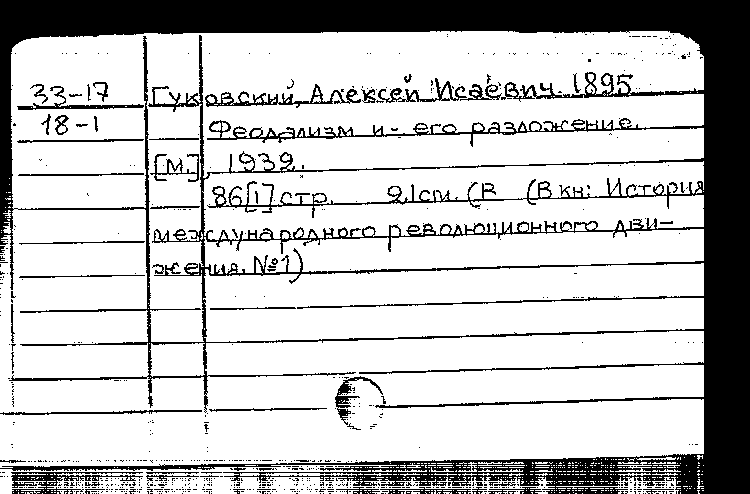 33-17 Гуковский, Алексей Исаевич 1895
18-1 Феодализм и его разложение.
[М.], 1932.
86[1] стр. 21см. (В (В кн: История
международного революционного дви-
жения. №1)